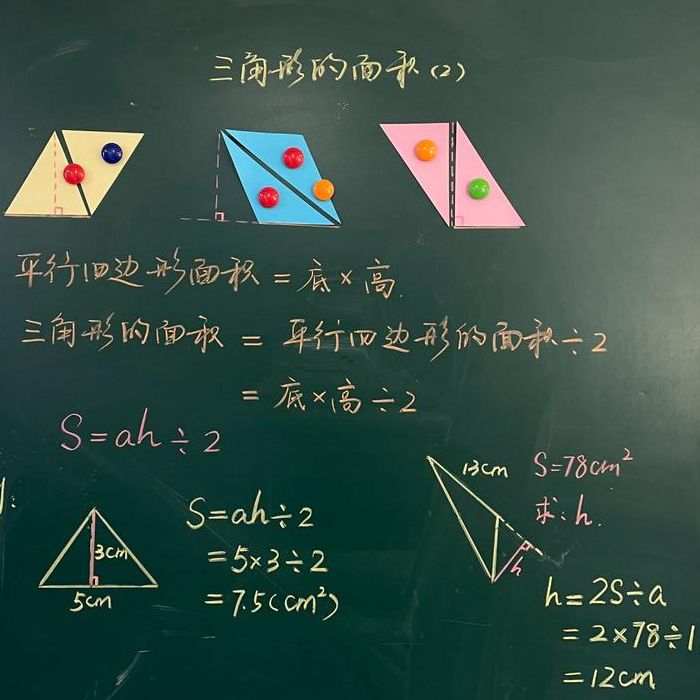 三角形的面积(2)
平行四边形面积=底×高
三角形的面积=平行四边形的面积÷2
=底×高÷2
S=ah÷2
3cm
5cm
S=ah÷2
=5×3÷2
=7.5(cm²)
13cm
S=78cm²
求:h.
h
h=2S÷a
=2×78÷1
=12cm